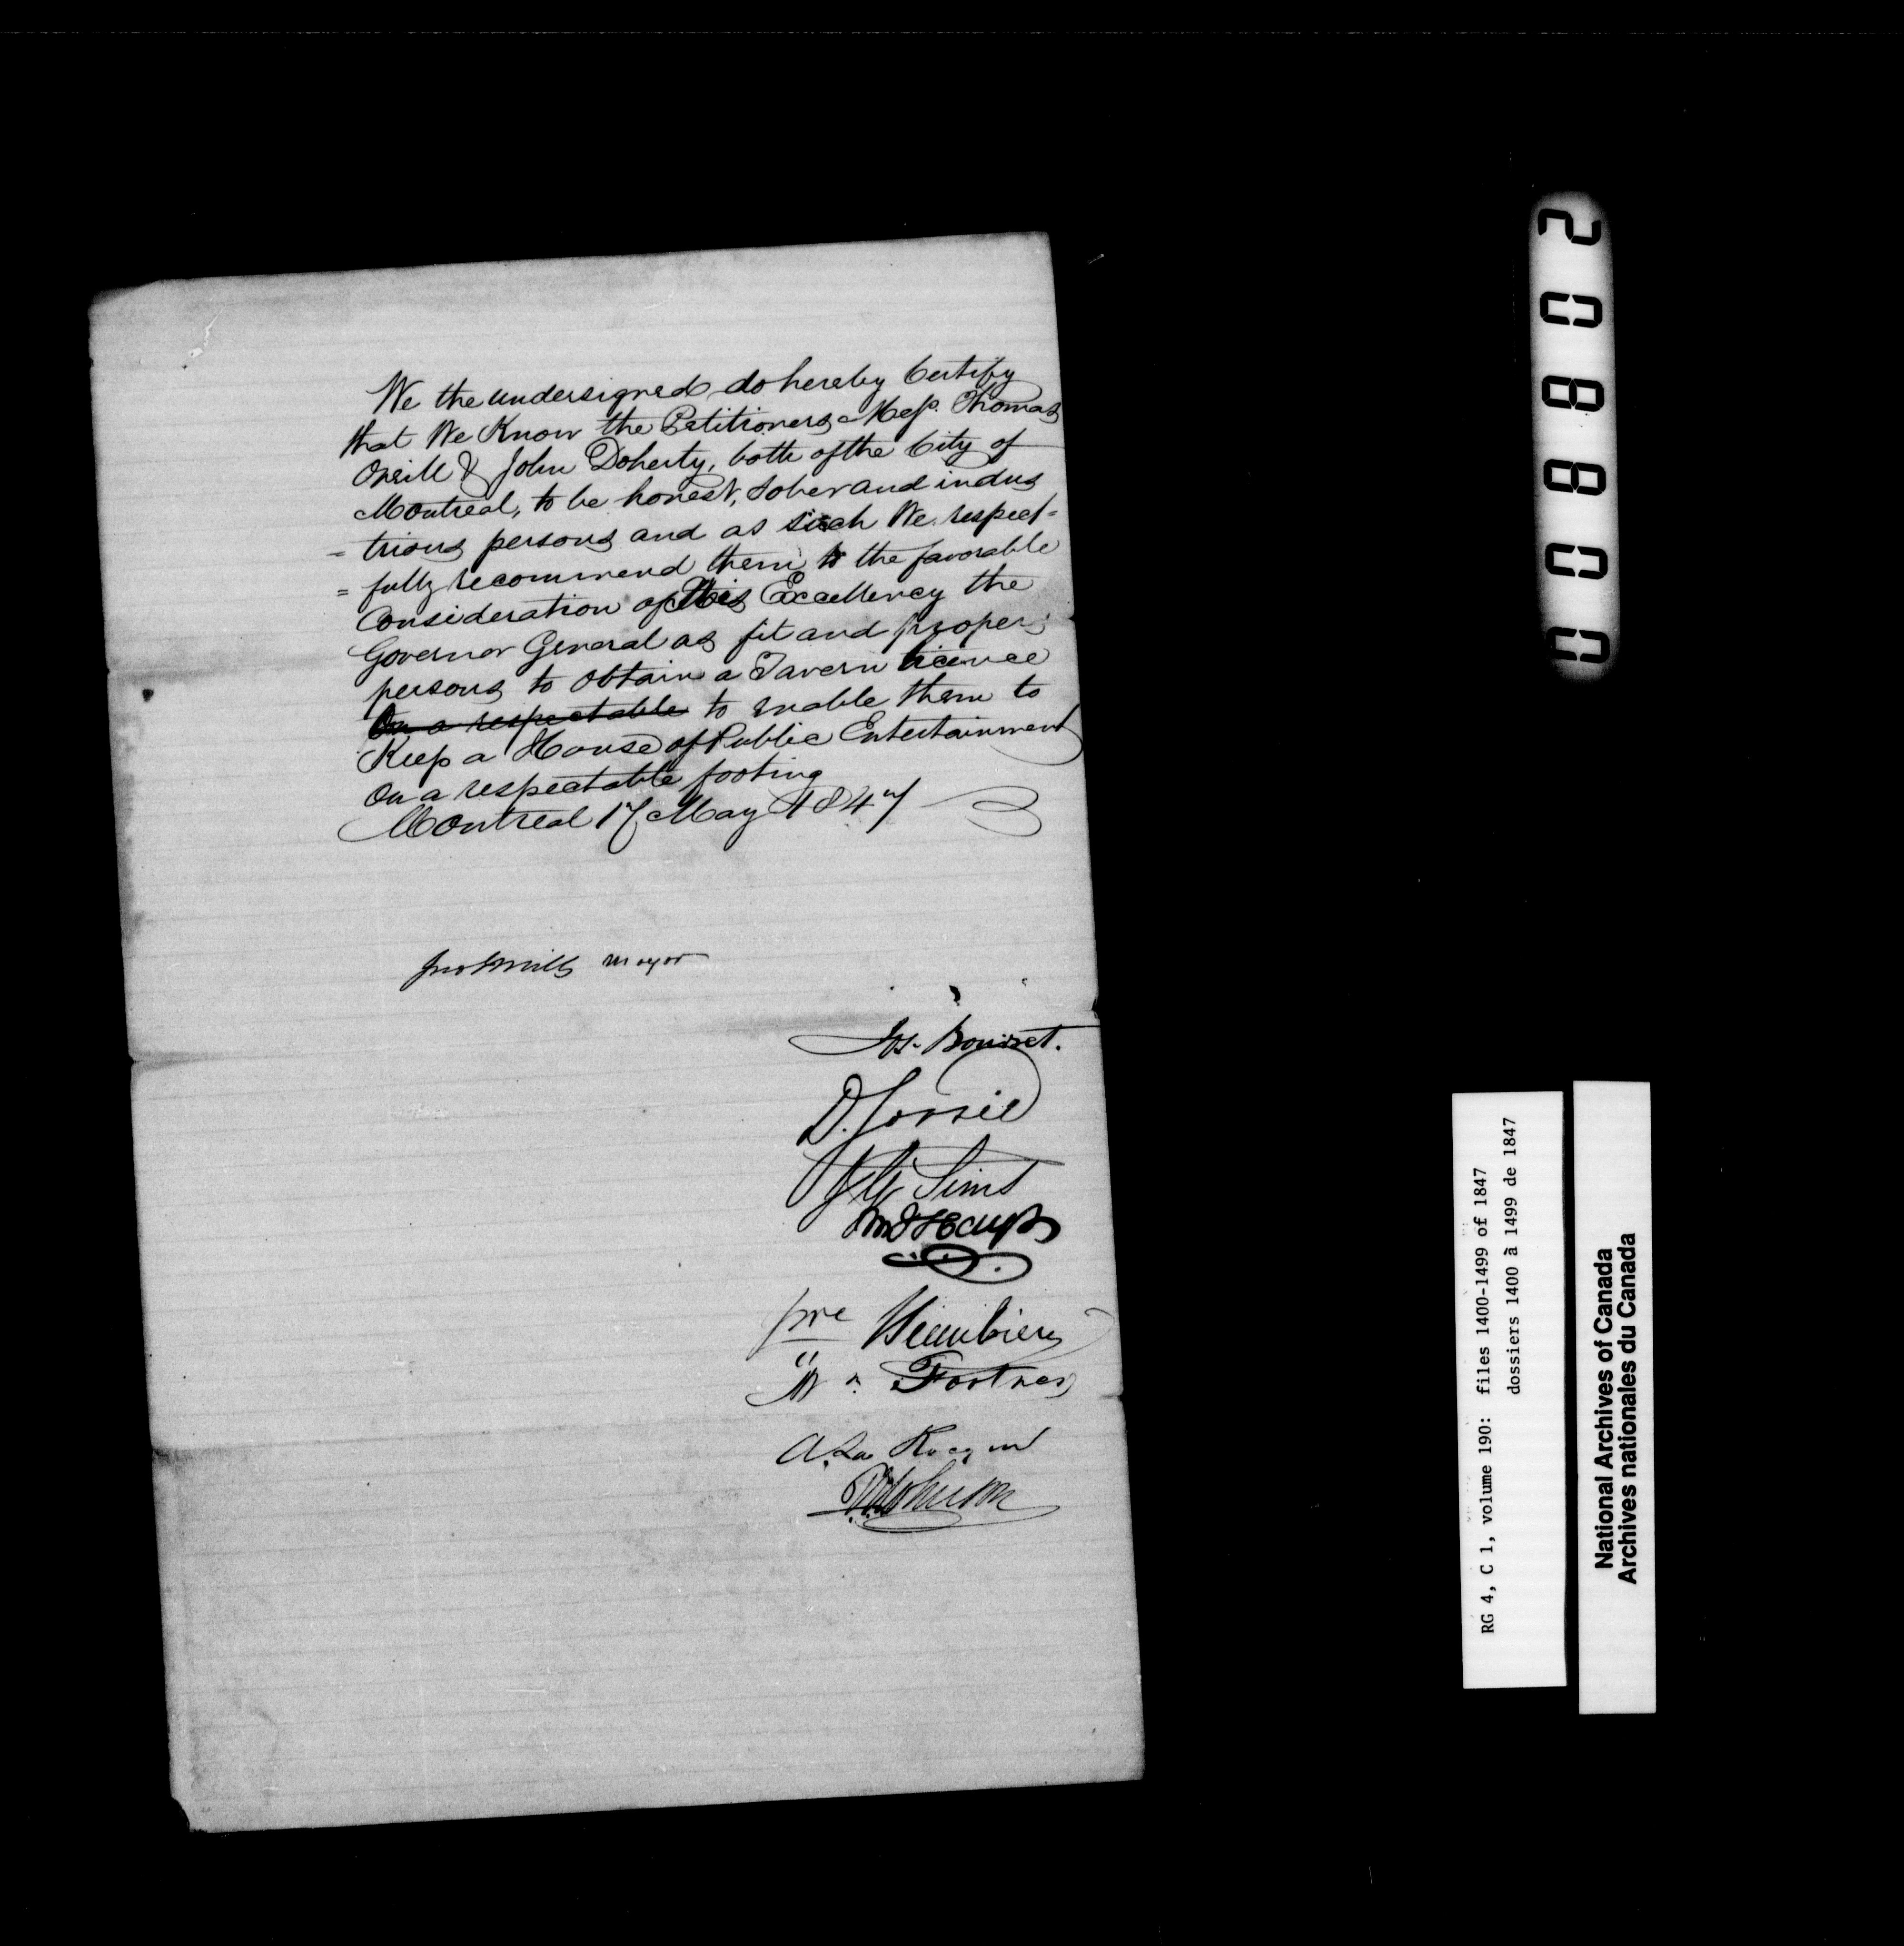 We the undersigned do hereby Certify
that We Know the Petitioners Mess. Thomas
Oneill & John Doherty, both of the City of
Montreal, to be honest, sober and indus
= trious persons and as such We respect=
= fully recommend them to the favorable
Consideration of His Excellency the
Governor General as fit and proper
persons to obtain a Tavern licence
On a respectable to enable them to
Keep a House of Public Entertainment
On a respectable footing
Montreal 17 May 1847
Jno E Mills mayor
Jos. Bourret.
D. Gorrie
J G Sims
Pre
Wm. Footner
A. La Rocque
RG 4, C 1, volume 190: files 1400-1499 of 1847
dossiers 1400 à 1499 de 1847
National Archives of Canada
Archives nationales du Canada
008802